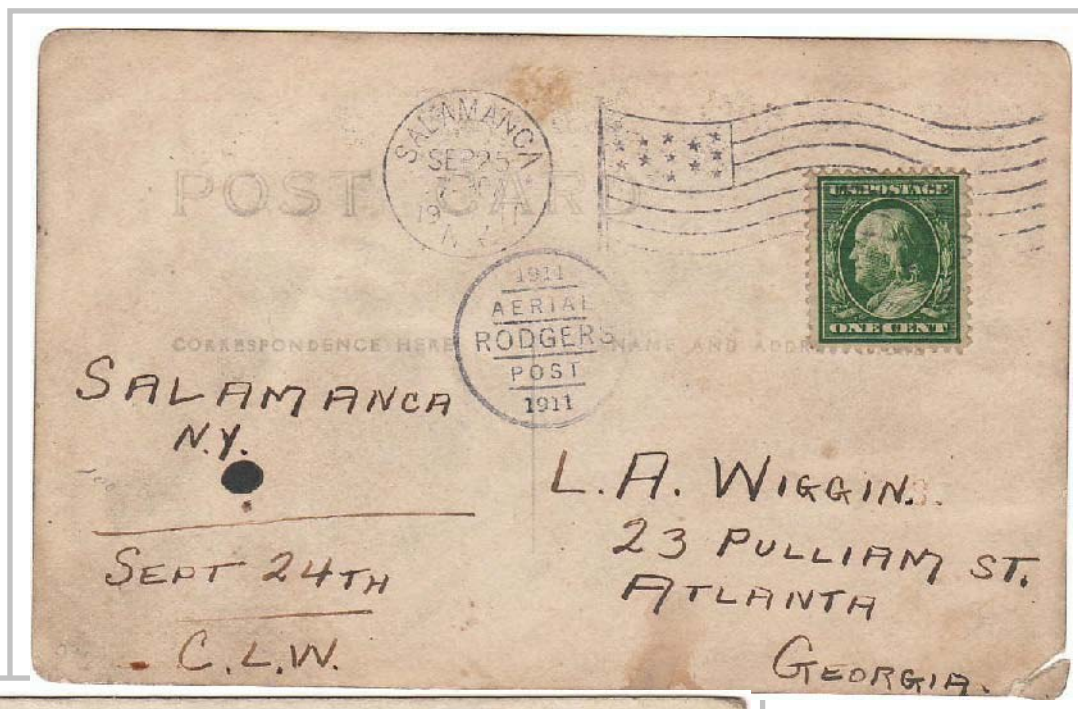 SALAMANCA
SEP 25
19 11
N.Y.
POST CARD
U.S. POSTAGE
ONE CENT
1911
AERIAL
RODGERS
POST
1911
CORRESPONDENCE HERE
NAME AND ADDR
SALAMANCA
N.Y.
SEPT 24TH
C.L.W.
L.A. WIGGIN.
23 PULLIAM ST.
ATLANTA
GEORGIA.